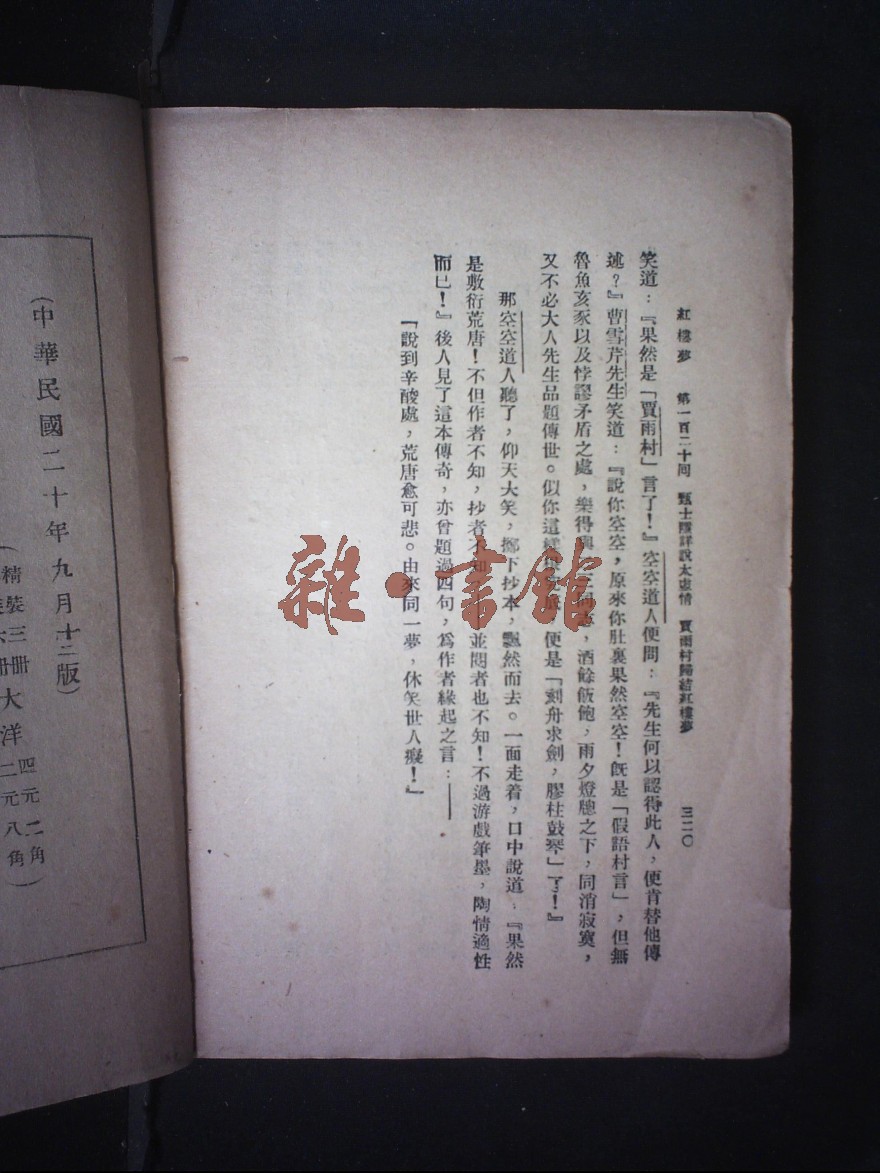 紅樓夢　第一百二十回　甄士隱詳說太虛情　賈雨村歸結紅樓夢　三二〇
笑道：『果然是「賈雨村」言了！』空空道人便問：『先生何以認得此人，便肯替他傳
述？』曹雪芹先生笑道：『說你空空，原來你肚裏果然空空！旣是「假語村言」，但無
魯魚亥豕以及悖謬矛盾之處，樂得與二三同志，酒餘飯飽，雨夕燈牕之下，同消寂寞，
又不必大人先生品題傳世。似你這樣尋根究底，便是「刻舟求劍，膠柱鼓琴」了！』
那空空道人聽了，仰天大笑，擲下抄本，飄然而去。一面走着，口中說道：『果然
是敷衍荒唐！不但作者不知，抄者不知，並閱者也不知！不過游戲筆墨，陶情適性
而已！』後人見了這本傳奇，亦曾題過四句，爲作者緣起之言：——
「說到辛酸處，荒唐愈可悲。由來同一夢，休笑世人癡！』
(中華民國二十年九月十二版)
(精裝三冊大洋四元二角
六冊 二元八角)
雜·書館